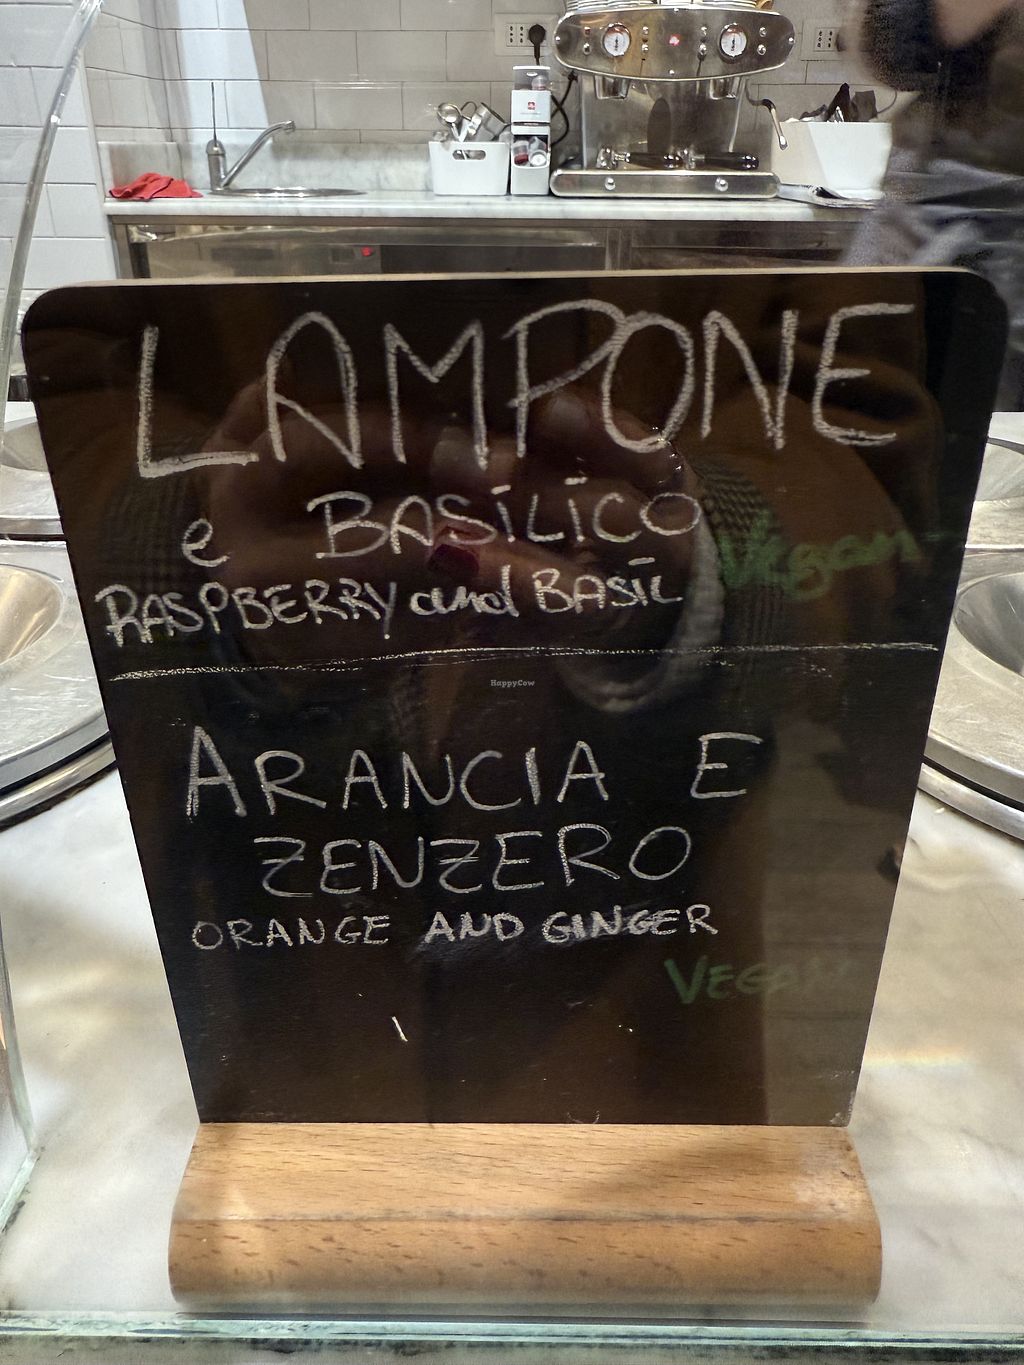 LAMPONE
e BASILICO
Vegan
RASPBERRY and BASIL
HappyCow
ARANCIA E
ZENZERO
ORANGE AND GINGER
VEGAN